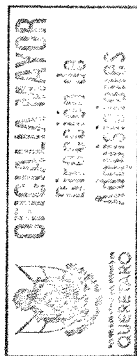 OFICIALIA MAYOR
Dirección de
Adquisiciones
QUERÉTARO